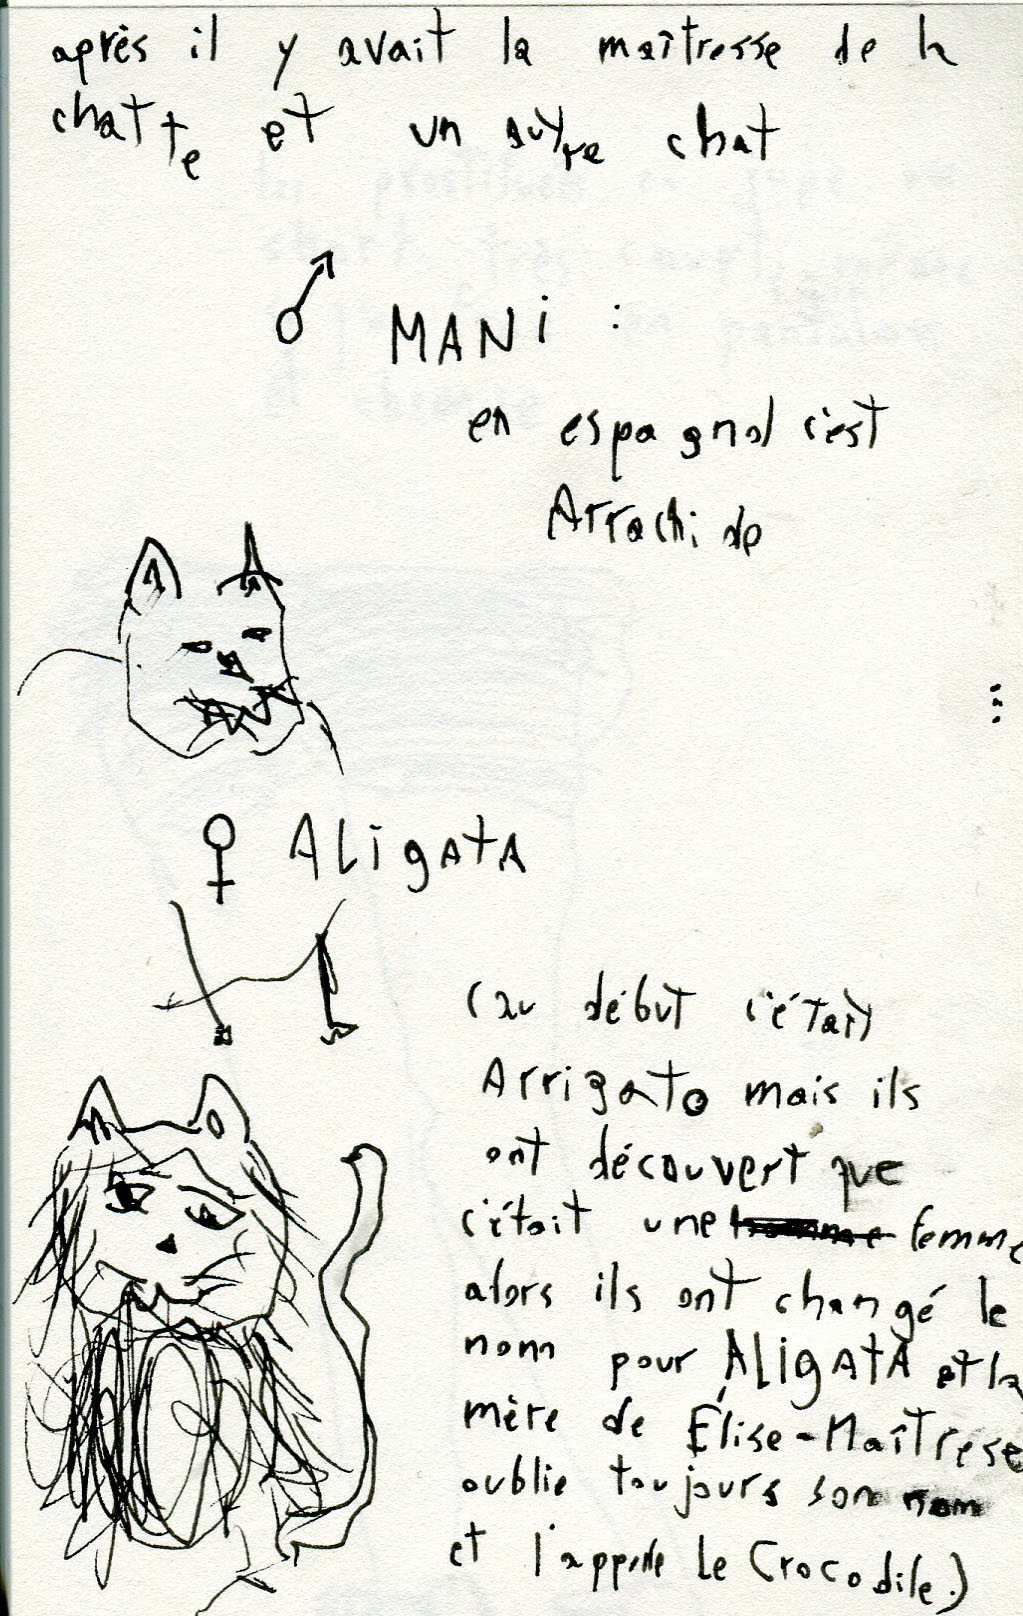 après il y avait la maîtresse de la
chatte et un autre chat
♂ MANi :
en espagnol c'est
Arrachide
♀ ALigAtA
(au début c'était
Arrigato mais ils
ont découvert que
c'était une homme femme
alors ils ont changé le
nom pour ALigAtA et la
mère de Élise-Maîtresse
oublie toujours son nom
et l'appelle Le Crocodile.)